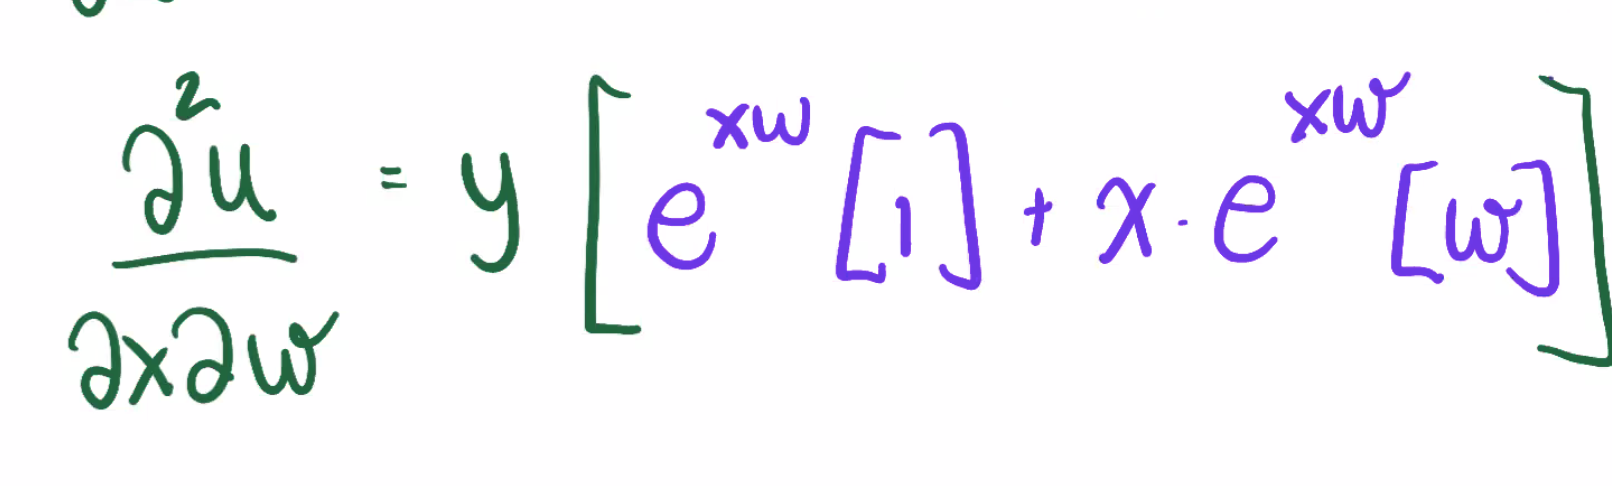 ∂²u/∂x∂w = y [ e^{xw} [1] + x · e^{xw} [w] ]